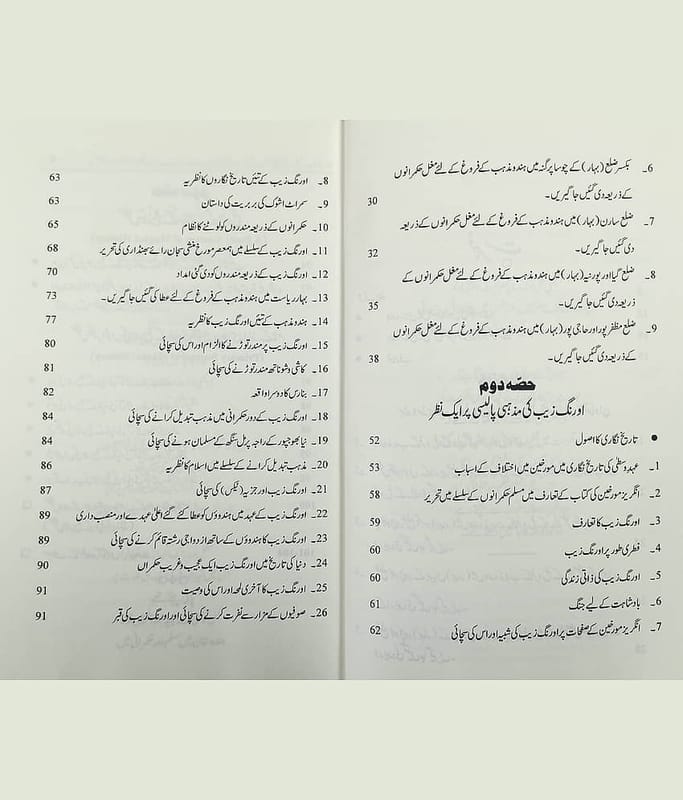 6۔ بکسر ضلع (بہار) کے چوسا پرگنہ میں ہندو مذہب کے فروغ کے لئے مغل حکمرانوں
کے ذریعہ دی گئیں جاگیریں۔ 30
7۔ ضلع سارن (بہار) میں ہندو مذہب کے فروغ کے لئے مغل حکمرانوں کے ذریعہ
دی گئیں جاگیریں۔ 32
8۔ ضلع گیا اور پورنیہ (بہار) میں ہندو مذہب کے فروغ کے لئے مغل حکمرانوں کے
ذریعہ دی گئیں جاگیریں۔ 35
9۔ ضلع مظفر پور اور حاجی پور (بہار) میں ہندو مذہب کے فروغ کے لئے مغل حکمرانوں
کے ذریعہ دی گئیں جاگیریں۔ 38
حصّہ دوم
اورنگ زیب کی مذہبی پالیسی پر ایک نظر
● تاریخ نگاری کا اصول 52
1۔ عہد وسطیٰ کی تاریخ نگاری میں مورخین میں اختلاف کے اسباب 53
2۔ انگریز مورخین کی کتاب کے تعارف میں مسلم حکمرانوں کے سلسلے میں تحریر 58
3۔ اورنگ زیب کا تعارف 59
4۔ فطری طور پر اورنگ زیب 60
5۔ اورنگ زیب کی ذاتی زندگی 60
6۔ بادشاہت کے لیے جنگ 61
7۔ انگریز مورخین کے صفحات پر اورنگ زیب کی شبیہ اور اس کی سچائی 62
8۔ اورنگ زیب کے تئیں تاریخ نگاروں کا نظریہ 63
9۔ سمراٹ اشوک کی بربریت کی داستان 63
10۔ حکمرانوں کے ذریعہ مندروں کو لوٹنے کا نظام 65
11۔ اورنگ زیب کے سلسلے میں ہمعصر مورخ منشی سجان رائے بھنڈاری کی تحریر 68
12۔ اورنگ زیب کے ذریعہ مندروں کو دی گئی امداد 70
13۔ بہار ریاست میں ہندو مذہب کے فروغ کے لئے عطا کی گئیں جاگیریں۔ 73
14۔ ہندو مذہب کے تئیں اورنگ زیب کا نظریہ 77
15۔ اورنگ زیب پر مندر توڑنے کا الزام اور اس کی سچائی 80
16۔ کاشی وشوناتھ مندر توڑنے کی سچائی 81
17۔ بنارس کا دوسرا واقعہ 82
18۔ اورنگ زیب کے دور حکمرانی میں مذہب تبدیل کرانے کی سچائی 84
19۔ نیا بھوجپور کے راجہ پربل سنگھ کے مسلمان ہونے کی سچائی 84
20۔ مذہب تبدیل کرانے کے سلسلے میں اسلام کا نظریہ 86
21۔ اورنگ زیب اور جزیہ (ٹیکس) کی سچائی 87
22۔ اورنگ زیب کے عہد میں ہندوؤں کو عطا کئے گئے اعلیٰ عہدے اور منصب داری 89
23۔ اورنگ زیب کا ہندوؤں کے ساتھ ازدواجی رشتہ قائم کرنے کی سچائی 89
24۔ دنیا کی تاریخ میں اورنگ زیب ایک عجیب و غریب حکمراں 90
25۔ اورنگ زیب کا آخری لمحہ اور اس کی وصیت 91
26۔ صوفیوں کے مزار سے نفرت کرنے کی سچائی اور اورنگ زیب کی قبر 91